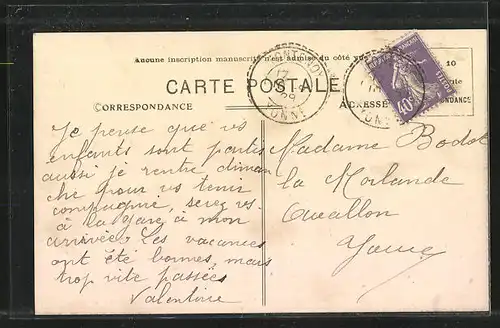 Aucune inscription manuscrite n'est admise du côté
CARTE POSTALE
CORRESPONDANCE
ADRESSE
10
NDANCE
YONNE
29
40c
Je pense que vs
enfants sont partis
aussi je rentre diman
che pour vs tenir
compagnie, serez vs
à la gare à mon
arrivée. Les vacances
ont été bonnes, mais
trop vite passées
Valentine
Madame Bodot
la Morlande
Avallon
Yonne